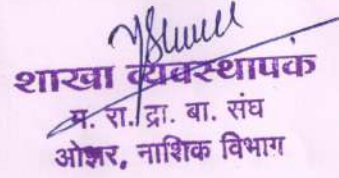 शाखा व्यवस्थापक
म. रा. द्रा. बा. संघ
ओझर, नाशिक विभाग